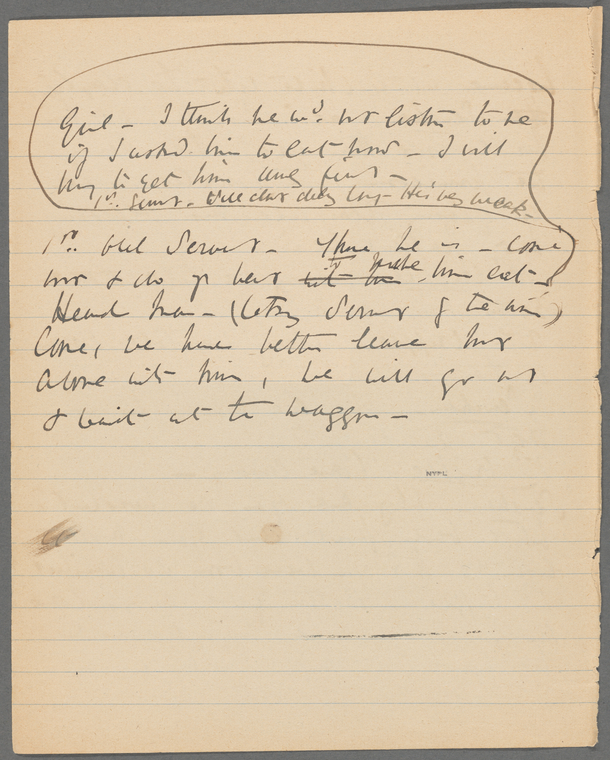 Girl - I think he wd. not listen to me
if I asked him to eat now - I will
try to get him away first -
1st. Servt. - dont delay long - He is very weak -
1st. old Servant - There he is - come
now & do yr best to make him eat -
Head man - (to the Servants of the Inn)
Come, we had better leave her
alone with him, we will go out
& wait at the waggon -
NYPL